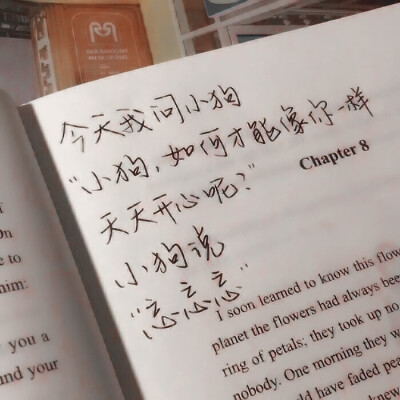 今天我问小狗
“小狗，如何才能像你一样
天天开心呢？”
小狗说
“忘忘忘”
Chapter 8
I soon learned to know this flow
planet the flowers had always bee
ring of petals; they took up no
nobody. One morning they w
ld have faded pea
knew
On
e to
him:
you a
and your